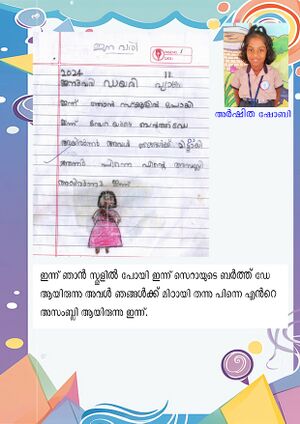 ജനുവരി
2024 11
ജനുവരി ഡയറി വ്യാഴം
ഇന്ന് ഞാൻ സ്കൂളിൽ പോയി
ഇന്ന് ബർത്ത് ഡേ
ആയിരുന്നു അവൾ ഞങ്ങൾക്ക് മിഠായി
തന്നു പിന്നെ അസംബ്ലി
ആയിരുന്നു ഇന്ന്
അർഷിത ഷോബി
ഇന്ന് ഞാൻ സ്കൂളിൽ പോയി ഇന്ന് സെറായുടെ ബർത്ത് ഡേ
ആയിരുന്നു അവൾ ഞങ്ങൾക്ക് മിഠായി തന്നു പിന്നെ എൻറെ
അസംബ്ലി ആയിരുന്നു ഇന്ന്.